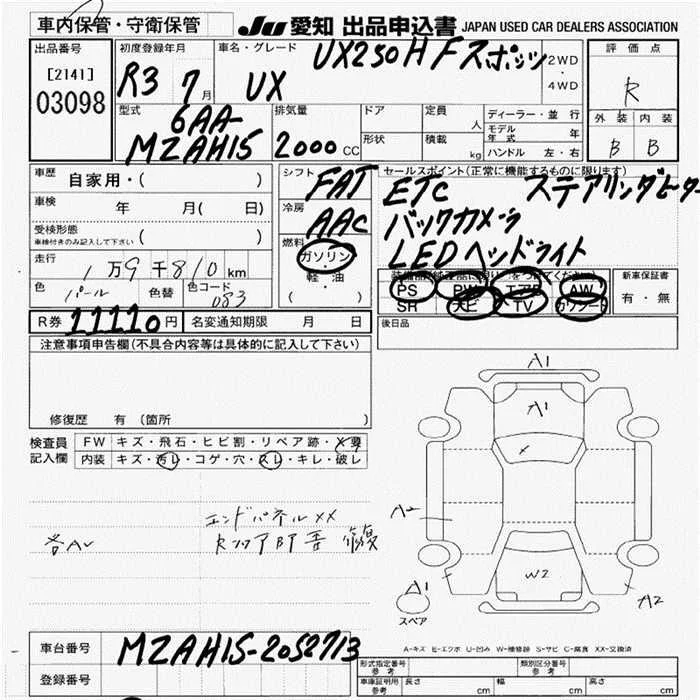 車内保管・守衛保管
JU 愛知 出品申込書 JAPAN USED CAR DEALERS ASSOCIATION
出品番号
[2141]
03098
初度登録年月
R3 7月
車名・グレード
UX
UX250H Fスポッツ
2WD
・
4WD
評価点
R
外装 内装
B B
型式
6AA-
MZAH15
排気量
2000 CC
ドア
形状
定員
人
積載
kg
ディーラー・並行
モデル年式 年
ハンドル 左・右
車歴
自家用・( )
車検
年 月( 日)
受検形態
車検付きのみ記入して下さい ( )
走行
1万9千810km
色 パール 色替 色コード 083
シフト
FAT
冷房
AAC
燃料
ガソリン
・
軽・油
( )
セールスポイント(正常に機能するものに限ります)
ETC ステアリングヒーター
バックカメラ
LEDヘッドライト
PS PW エアB AW
SR ナビ TV カワシート
新車保証書
有・無
後日品
R券 11110円 名変通知期限 月 日
注意事項申告欄(不具合内容等は具体的に記入して下さい)
修復歴 有 (箇所 )
検査員
記入欄
FW キズ・飛石・ヒビ割・リペア跡・X要
内装 キズ・汚レ・コゲ・穴・スレ・キレ・破レ
エンドパネルXX
各AU
A1
A1
X
A2
W2
A1
A2
スペア
A-キズ E-エクボ U-凹み W-補修跡 S-サビ C-腐食 XX-交換済
車台番号 MZAH15-2052713
登録番号
形式指定番号
参考
類別区分番号
参考
車庫証明用
参考
長さ cm 幅 cm 高さ cm